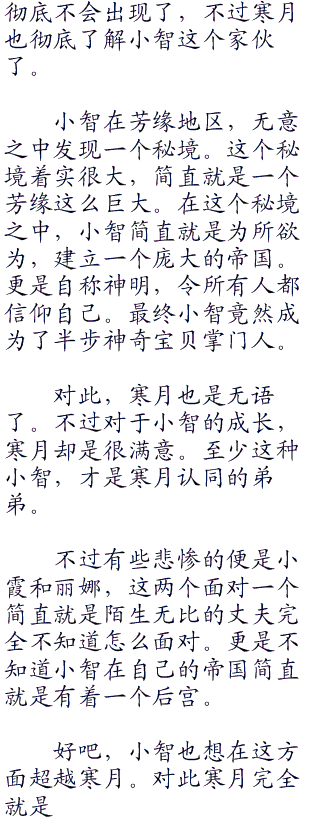 彻底不会出现了，不过寒月
也彻底了解小智这个家伙
了。
小智在芳缘地区，无意
之中发现一个秘境。这个秘
境着实很大，简直就是一个
芳缘这么巨大。在这个秘境
之中，小智简直就是为所欲
为，建立一个庞大的帝国。
更是自称神明，令所有人都
信仰自己。最终小智竟然成
为了半步神奇宝贝掌门人。
对此，寒月也是无语
了。不过对于小智的成长，
寒月却是很满意。至少这种
小智，才是寒月认同的弟
弟。
不过有些悲惨的便是小
霞和丽娜，这两个面对一个
简直就是陌生无比的丈夫完
全不知道怎么面对。更是不
知道小智在自己的帝国简直
就是有着一个后宫。
好吧，小智也想在这方
面超越寒月。对此寒月完全
就是